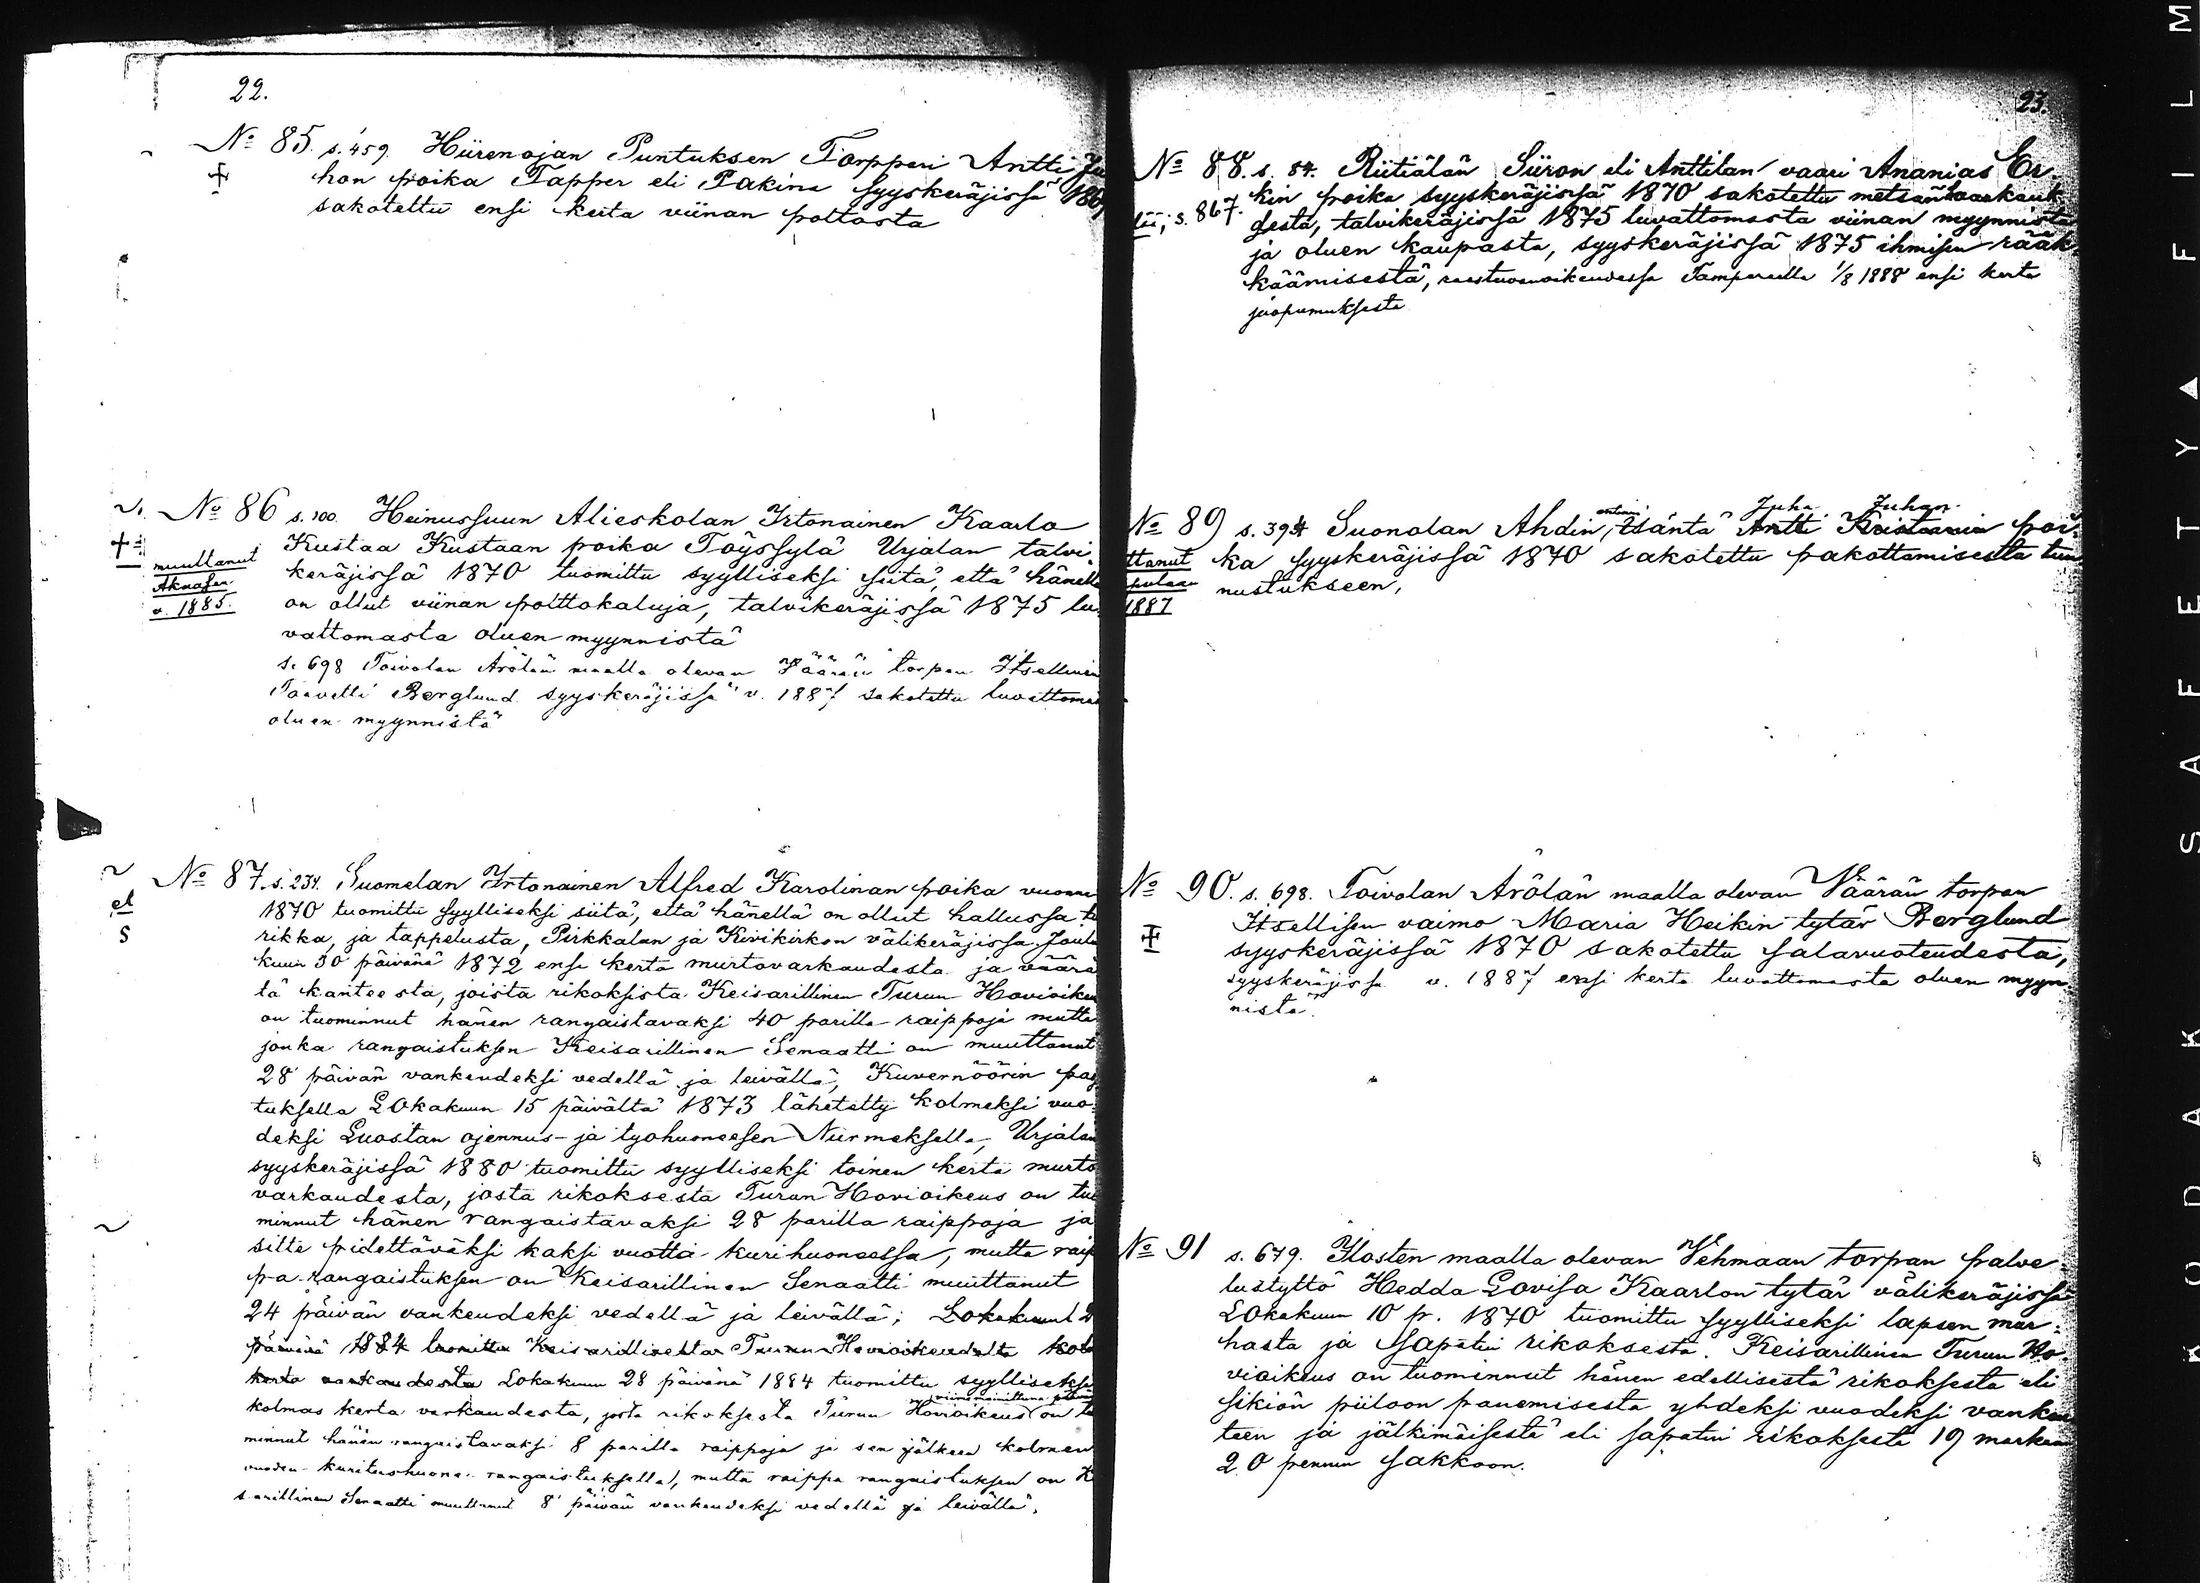 22.
No 85. s. 459. Hiirenojan Puntuksen Torppari Antti Ju
hon poika Tapper eli Pakina syyskeräjissä
sakotettu ensi kerta viinan poltosta
No 86 s. 100. Heinussuun Alieskolan Irtonainen Kaarlo
muuttanut
Akaasen
v. 1885.
Kustaa Kustaan poika Töyssylä Urjalan talvi
keräjissä 1870 tuomittu syylliseksi siitä, että hänellä
on ollut viinan polttokaluja, talvikeräjissä 1875 lu
vattomasta oluen myynnistä
s. 698 Toivolan Arölän maalla olevan Väärän torpan Itsellinen
Taavetti Berglund syyskeräjissä v. 1887 sakotettu luvattomas
oluen myynnistä
No 87. s. 234. Suomelan Irtonainen Alfred Karolinan poika vuonna
el
s
1870 tuomittu syylliseksi siitä, että hänellä on ollut hallussa ti
rikka, ja tappelusta, Pirkkalan ja Kivikirkon välikeräjissä Joulu
kuun 30 päivänä 1872 ensi kerta murtovarkaudesta ja väärä
tä kanteesta, joista rikoksista Keisarillinen Turun Hovioikeu
on tuominnut hänen rangaistavaksi 40 parilla raippoja mutta
jonka rangaistuksen Keisarillinen Senaatti on muuttanut
28 päivän vankeudeksi vedellä ja leivällä, Kuvernöörin pää
tuksella Lokakuun 15 päivältä 1873 lähetetty kolmeksi vuo
deksi Luostan ojennus- ja työhuoneesen Nurmeksella, Urjalan
syyskeräjissä 1880 tuomittu syylliseksi toinen kerta murto
varkaudesta, josta rikoksesta Turun Hovioikeus on tuo
minnut hänen rangaistavaksi 28 parilla raippoja ja
sitte pidettäväksi kaksi vuotta kurihuoneessa, mutta raip
pa-rangaistuksen on Keisarillinen Senaatti muuttanut
24 päivän vankeudeksi vedellä ja leivällä; Lokakuun 2
päivänä 1884 tuomittu Keisarilliselta Turun Hovioikeudelta kol
kerta varkaudesta Lokakuun 28 päivänä 1884 tuomittu syylliseksi
viimemainittuna päivänä
kolmas kerta varkaudesta, josta rikoksesta Turun Hovioikeus on tu
minnut hänen rangaistavaksi 8 parilla raippoja ja sen jälkeen kolmen
vuoden kuritushuone-rangaistuksella, mutta raippa rangaistuksen on Ke
sarillinen Senaatti muuttanut 8 päivän vankeudeksi vedellä ja leivällä.
23.
No 88. s. 84. Riitiälän Siiron eli Anttilan vaari Ananias Er
s. 867. kin poika syyskeräjissä 1870 sakotettu metsänhaaskauk
sesta, talvikeräjissä 1875 luvattomasta viinan myynnistä
ja oluen kaupasta, syyskeräjissä 1875 ihmisen rääk
käämisestä, raastuvanoikeudessa Tampereella 1/8 1888 ensi kerta
juopumuksesta
Juha Juhan
No 89 s. 394 Suonolan Ahdin, isäntä Antti Kristianin poi-
ttanut
1887
ka syyskeräjissä 1870 sakotettu pakottamisesta tun
nustukseen,
No 90. s. 698. Toivolan Arölän maalla olevan Väärän torpan
Itsellisen vaimo Maria Heikin tytär Berglund
syyskeräjissä 1870 sakotettu salavuoteudesta,
syyskeräjissä v. 1887 ensi kerta luvattomasta oluen myyn
nistä.
No 91 s. 679. Ilosten maalla olevan Vehmaan torpan palve
lustyttö Hedda Lovisa Kaarlon tytär välikeräjissä
Lokakuun 10 p. 1870 tuomittu syylliseksi lapsen mur-
hasta ja sapatin rikoksesta. Keisarillinen Turun Ho
vioikeus on tuominnut hänen edellisestä rikoksesta eli
sikiön piiloon panemisesta yhdeksi vuodeksi vankeu
teen ja jälkimäisestä eli sapatin rikoksesta 19 markan
20 pennin sakkoon.
KODAK SAFETY FILM